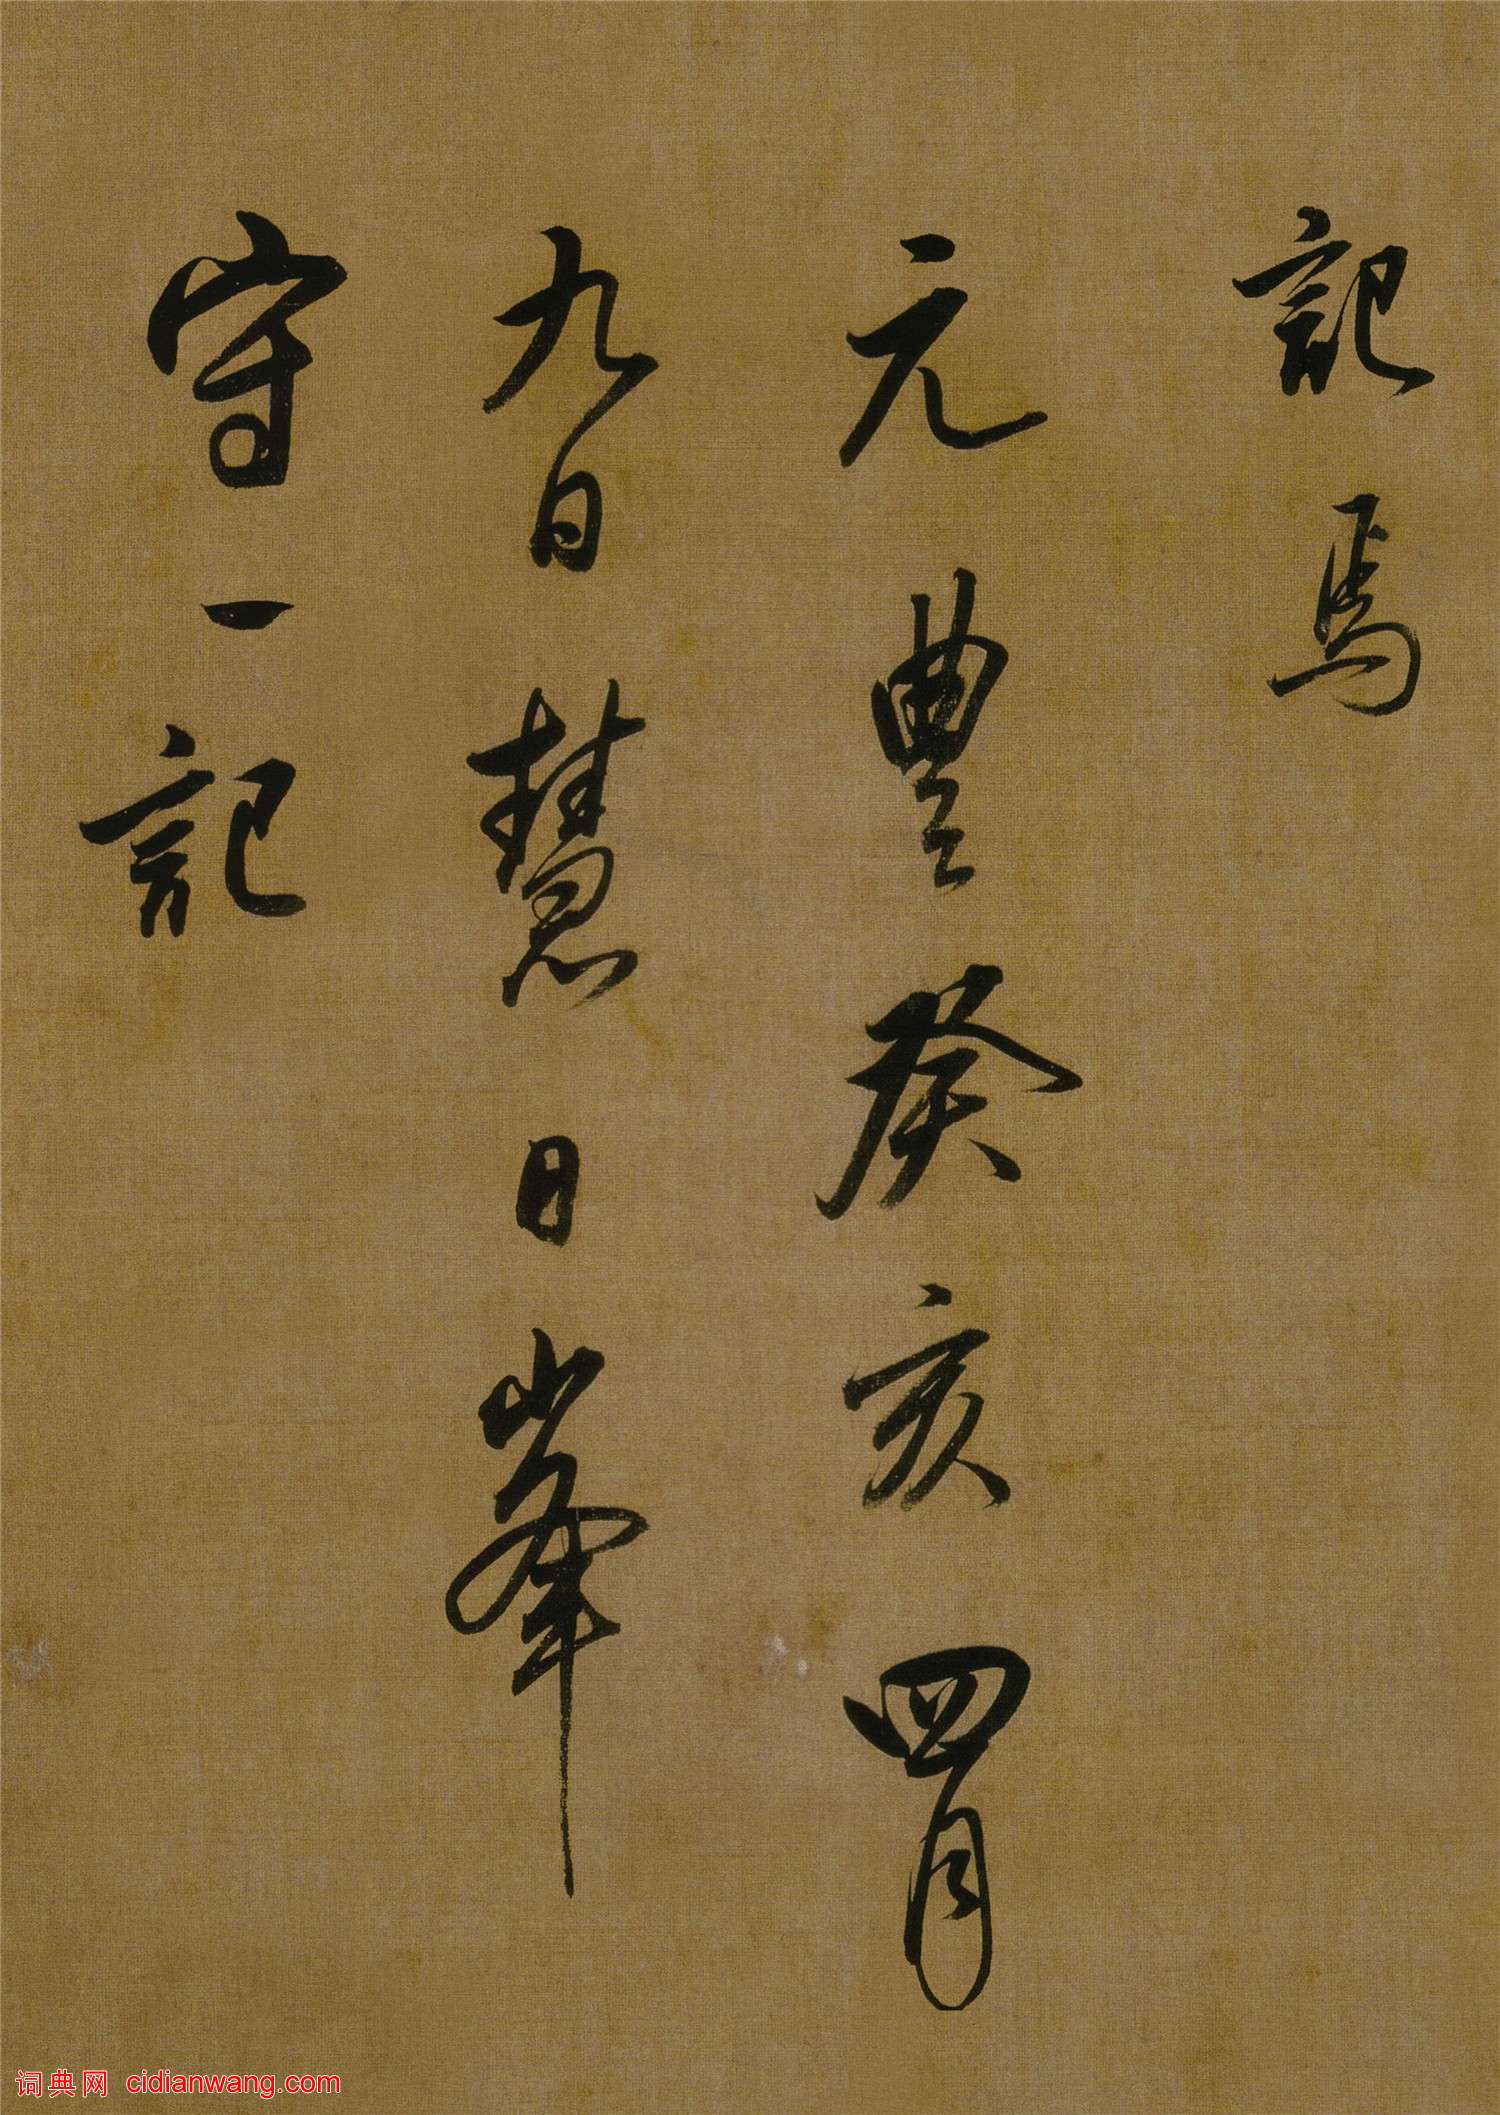 記焉
元豐癸亥四月
九日慧日峯
守一記
词典网 cidianwang.com